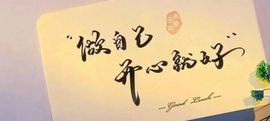 “做自己
开心就好”
— Good Luck —